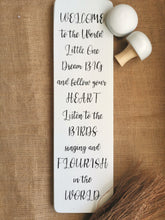 WELCOME
to the World
Little One
Dream BIG
and follow your
HEART
Listen to the
BIRDS
singing and
FLOURISH
in the
WORLD